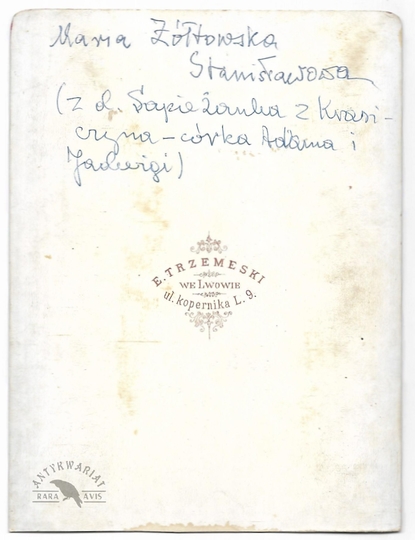 Maria Żółtowska
Stanisławowa
(z d. Sapieżanka z Krasi-
czyna – córka Adama i
Jadwigi)
E. TRZEMESKI
WE LWOWIE
ul. kopernika L. 9.
ANTYKWARIAT
RARA AVIS